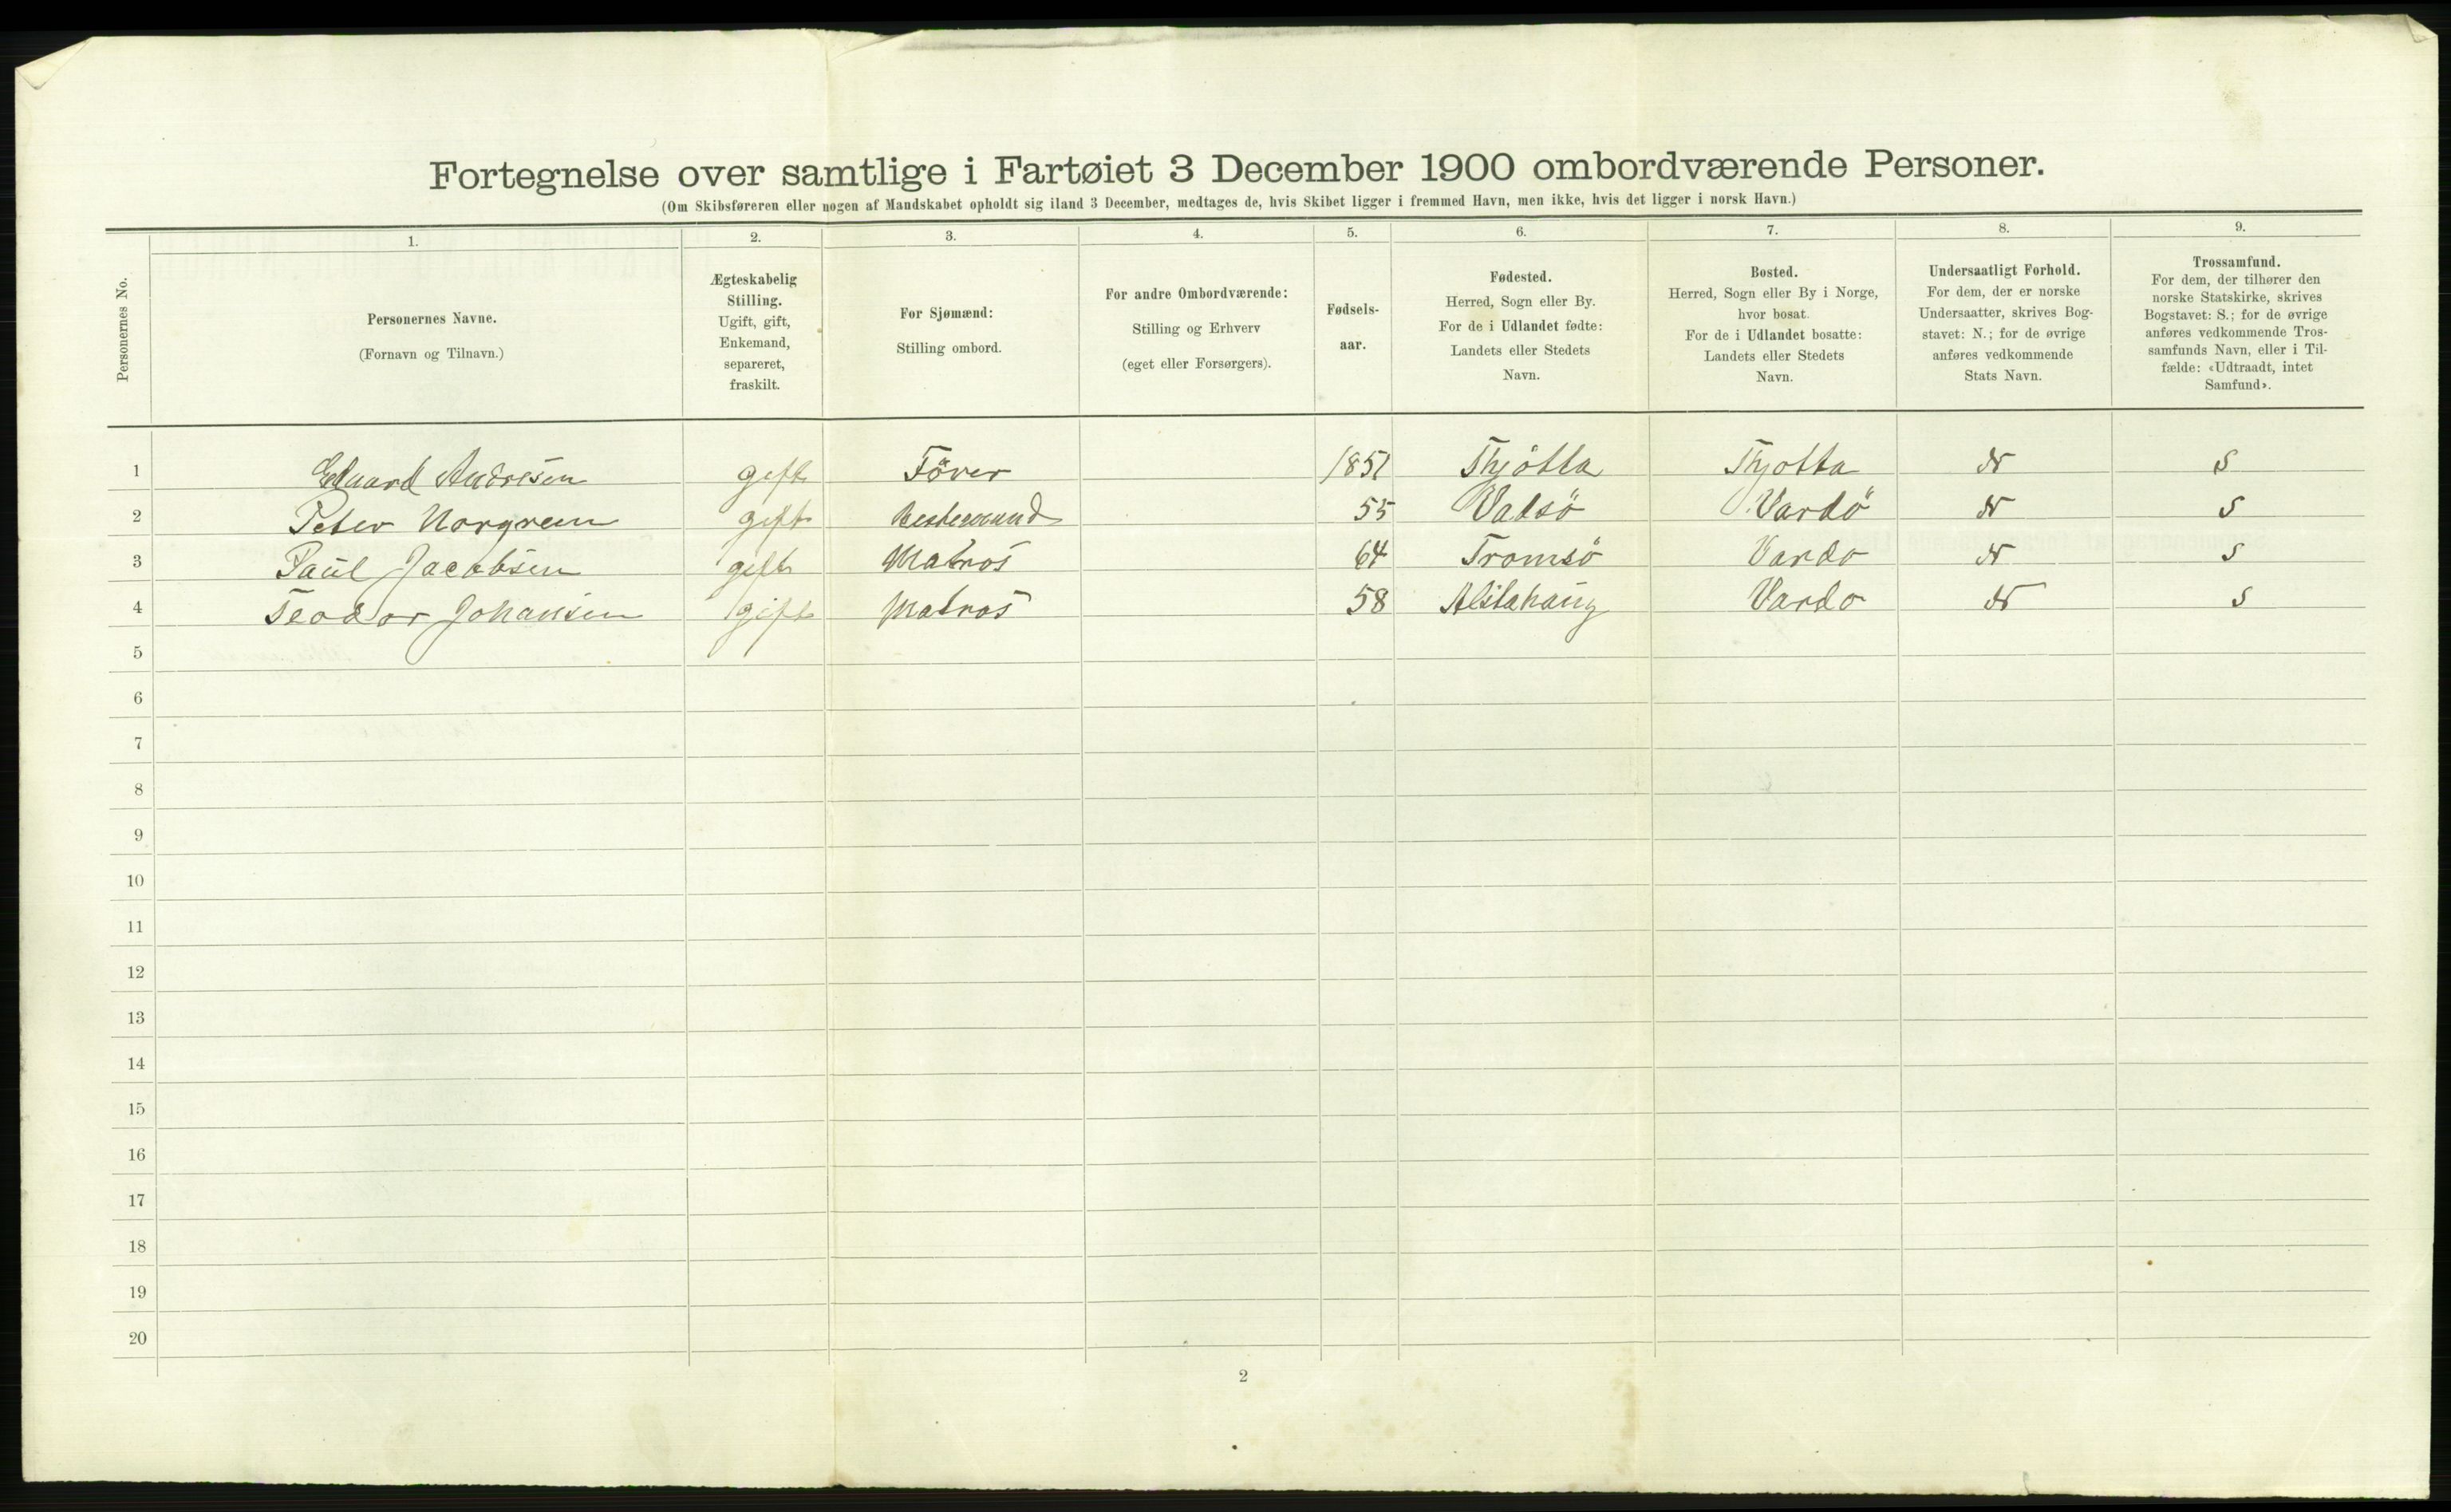 Fortegnelse over samtlige i Fartøiet 3 December 1900 ombordværende Personer.
(Om Skibsføreren eller nogen af Mandskabet opholdt sig iland 3 December, medtages de, hvis Skibet ligger i fremmed Havn, men ikke, hvis det ligger i norsk Havn.)
Personernes No.
1. 2. 3. 4. 5. 6. 7. 8. 9.
Personernes Navne.
(Fornavn og Tilnavn.)
Ægteskabelig
Stilling.
Ugift, gift,
Enkemand,
separeret,
fraskilt.
For Sjømænd:
Stilling ombord.
For andre Ombordværende:
Stilling og Erhverv
(eget eller Forsørgers).
Fødsels-
aar.
Fødested.
Herred, Sogn eller By.
For de i Udlandet fødte:
Landets eller Stedets
Navn.
Bosted.
Herred, Sogn eller By i Norge,
hvor bosat.
For de i Udlandet bosatte:
Landets eller Stedets
Navn.
Undersaatligt Forhold.
For dem, der er norske
Undersaatter, skrives Bog-
stavet: N.; for de øvrige
anføres vedkommende
Stats Navn.
Trossamfund.
For dem, der tilhører den
norske Statskirke, skrives
Bogstavet: S.; for de øvrige
anføres vedkommende Tros-
samfunds Navn, eller i Til-
fælde: «Udtraadt, intet
Samfund».
1 Eduard Andresen gift Förer 1851 Thjötta Thjotta N S
2 Peter Norgreen gift Bestemand 55 Vadsö Vardö N S
3 Paul Jacobsen gift Matros 64 Tromsö Vardo N S
4 Teodor Johansen gift Matros 58 Alstahaug Vardo N S
5
6
7
8
9
10
11
12
13
14
15
16
17
18
19
20
2